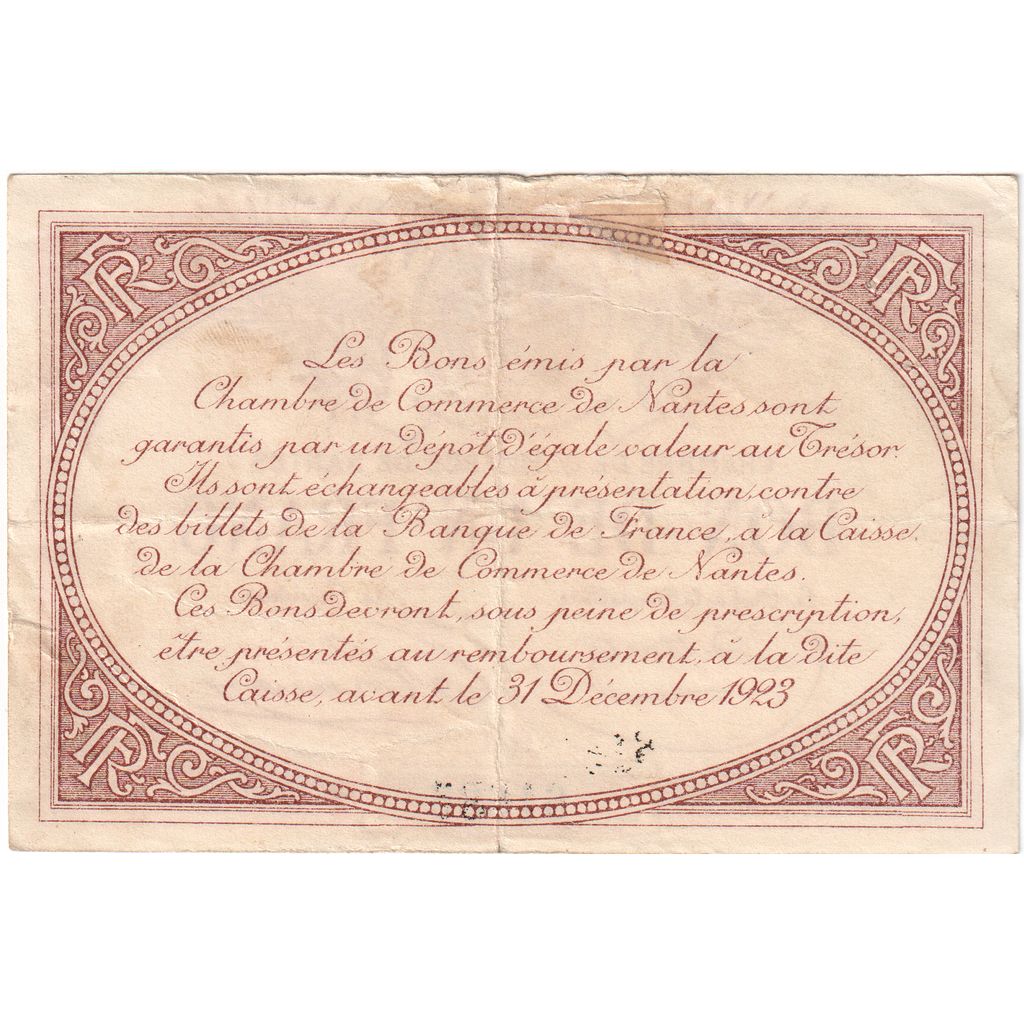 Les Bons émis par la
Chambre de Commerce de Nantes sont
garantis par un dépôt d'égale valeur au Trésor.
Ils sont échangeables à présentation, contre
des billets de la Banque de France, à la Caisse
de la Chambre de Commerce de Nantes.
Ces Bons devront, sous peine de prescription,
être présentés au remboursement, à la dite
Caisse, avant le 31 Décembre 1923
RF
RF
RF
RF